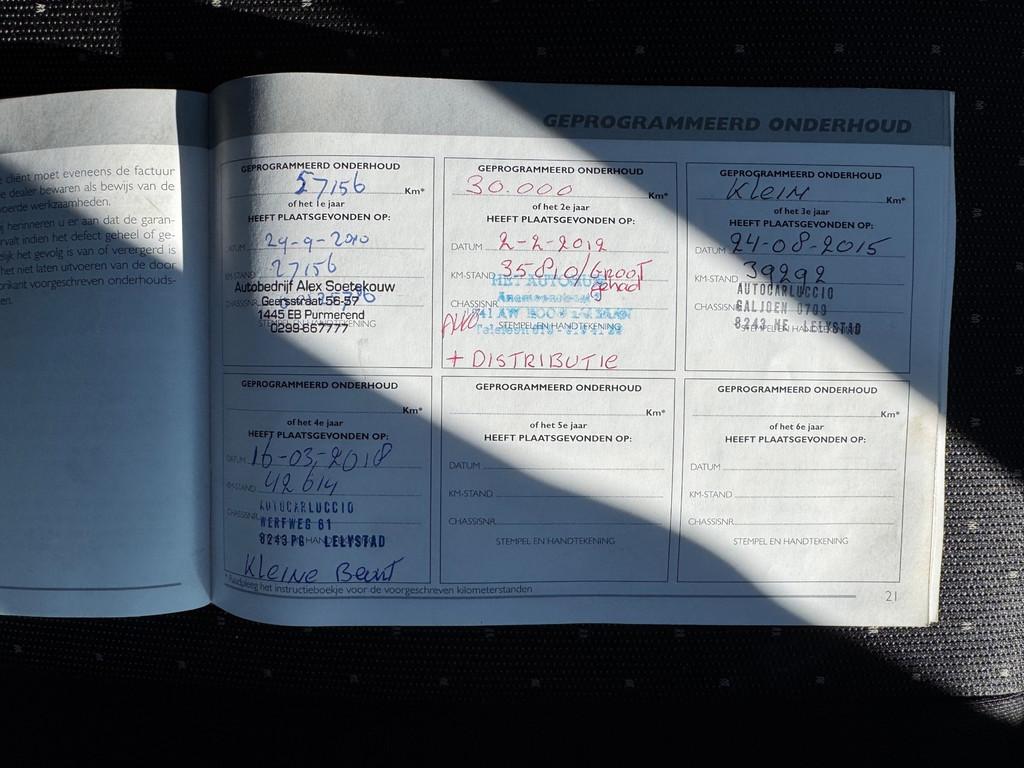 cliënt moet eveneens de factuur
dealer bewaren als bewijs van de
werkzaamheden.
herinneren u er aan dat de garan-
indien het defect geheel of ge-
het gevolg is van of verergerd is
het niet laten uitvoeren van de door
voorgeschreven onderhouds-
GEPROGRAMMEERD ONDERHOUD
GEPROGRAMMEERD ONDERHOUD
27156 Km*
of het 1e jaar
HEEFT PLAATSGEVONDEN OP:
DATUM 29-9-2010
KM-STAND 27156
Autobedrijf Alex Soetekouw
CHASSISNR. Geersstraat 55-57
1445 EB Purmerend
STEMPEL EN HANDTEKENING
0299-667777
GEPROGRAMMEERD ONDERHOUD
30.000 Km*
of het 2e jaar
HEEFT PLAATSGEVONDEN OP:
DATUM 2-2-2012
KM-STAND 35810/GROOT
gehad
CHASSISNR.
STEMPEL EN HANDTEKENING
+ DISTRIBUTIE
GEPROGRAMMEERD ONDERHOUD
KLEIN Km*
of het 3e jaar
HEEFT PLAATSGEVONDEN OP:
DATUM 24-08-2015
KM-STAND 39292
AUTOCARLUCCIO
CHASSISNR. GALJOEN 0709
8243 ME LELYSTAD
STEMPEL EN HANDTEKENING
GEPROGRAMMEERD ONDERHOUD
Km*
of het 4e jaar
HEEFT PLAATSGEVONDEN OP:
DATUM 16-03-2018
KM-STAND 42614
AUTOCARLUCCIO
CHASSISNR. WERFWEG 61
8243 PG LELYSTAD
KLEINE Beurt
GEPROGRAMMEERD ONDERHOUD
Km*
of het 5e jaar
HEEFT PLAATSGEVONDEN OP:
DATUM
KM-STAND
CHASSISNR.
STEMPEL EN HANDTEKENING
GEPROGRAMMEERD ONDERHOUD
Km*
of het 6e jaar
HEEFT PLAATSGEVONDEN OP:
DATUM
KM-STAND
CHASSISNR.
STEMPEL EN HANDTEKENING
* Raadpleeg het instructieboekje voor de voorgeschreven kilometerstanden
21